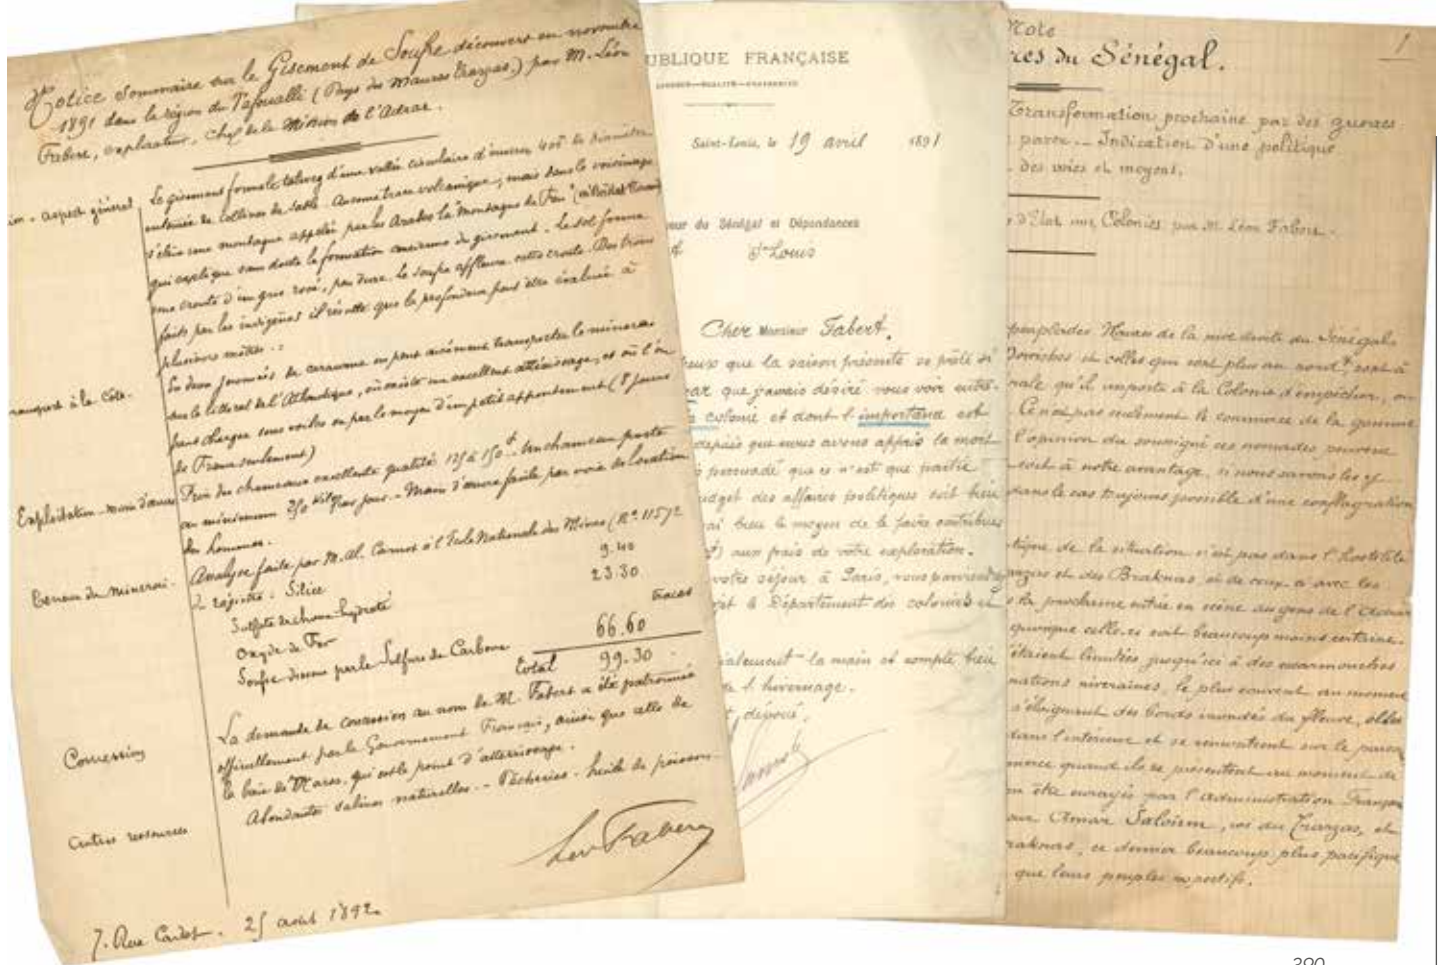 Notice Sommaire sur le Gisement de Soufre découvert en novembre
1891 dans la région du Tafoualli (Pays des Maures Trarzas) par M. Léon
Fabert, explorateur, chef de la Mission de l'Adrar.
aspect général
Le gisement forme le talweg d'une vallée circulaire d'environ 400 m de diamètre
entourée de collines de sable. Aucune trace volcanique, mais dans le voisinage
s'élève une montagne appelée par les Arabes la "montagne de Feu"
qui explique sans doute la formation ancienne du gisement. Le sol forme
une croute d'un gris rosé, peu dure. Le soufre affleure cette croute. Des trous
faits par les indigènes il résulte que la profondeur peut être évaluée à
plusieurs mètres.
transport à la Côte.
En deux journées de caravane on peut aisément transporter le minerai
sur le littoral de l'Atlantique, où existe un excellent attérissage, et où l'on
peut charger sous voiles ou par le moyen d'un petit appontement (8 jours
de France seulement)
Exploitation - main d'œuvre
Prix des chameaux excellente qualité 125 à 150 f. Un chameau porte
au minimum 250 kilos par jour. - Main d'œuvre facile par voie de location
des hommes.
Teneur du minerai.
Analyse faite par M. Ad. Carnot à l'Ecole Nationale des Mines (No 11572
du registre. Silice 9.40
Sulfate de chaux hydraté 23.30
Oxyde de Fer traces
Soufre dissous par le Sulfure de Carbone 66.60
Total 99.30
Concession
La demande de concession au nom de M. Fabert a été patronnée
officiellement par le Gouvernement Français, ainsi que celle de
la baie de Mares, qui est le point d'atterrissage.
Autres ressources
Abondantes salines naturelles. - Pêcheries - huile de poisson.
Léon Fabert
7. Rue Cadet. 25 août 1892.
UBLIQUE FRANÇAISE
LIBERTÉ—ÉGALITÉ—FRATERNITÉ
Saint-Louis, le 19 avril 1891
eur du Sénégal et Dépendances
St Louis
Cher Monsieur Fabert,
eux que la saison présente se prête si
car que j'avais désiré vous voir entre-
colonie et dont l'importance est
depuis que nous avons appris la mort
persuadé que ce n'est que partie
udget des affaires politiques soit bien
ai bien le moyen de le faire contribuer
aux frais de votre exploration.
votre séjour à Paris, vous pourriez
et le Département des colonies et
ialement la main et compte bien
de l'hivernage.
dévoué.
Note
res du Sénégal.
1
Transformation prochaine par des guerres
Indication d'une politique
des voies et moyens.
d'Etat aux Colonies par M. Léon Fabert.
peuplades Maures de la rive droite du Sénégal
Douiches et celles qui sont plus au nord, sont à
rale qu'il importe à la Colonie d'empêcher, ou
Ce n'est pas seulement le commerce de la gomme
l'opinion du soussigné ces nomades peuvent
soit à notre avantage, si nous savons les y
dans le cas toujours possible d'une conflagration
tique de la situation n'est pas dans l'hostilité
arzas et des Braknas, et de ceux-ci avec les
la prochaine entrée en scène des gens de l'Adrar
quoique celle-ci soit beaucoup moins certaine
étaient limitées jusqu'ici à des escarmouches
nations riveraines, le plus souvent au moment
s'éloignent des bords inondés du fleuve, elles
dans l'intérieur et se rencontrent sur le parcou
merce quand ils se présentent au moment de
être enrayés par l'administration Françai
our Amar Saloum, roi du Trarzas, et
raknas, ce dernier beaucoup plus pacifique
que leurs peuples respectifs.
390